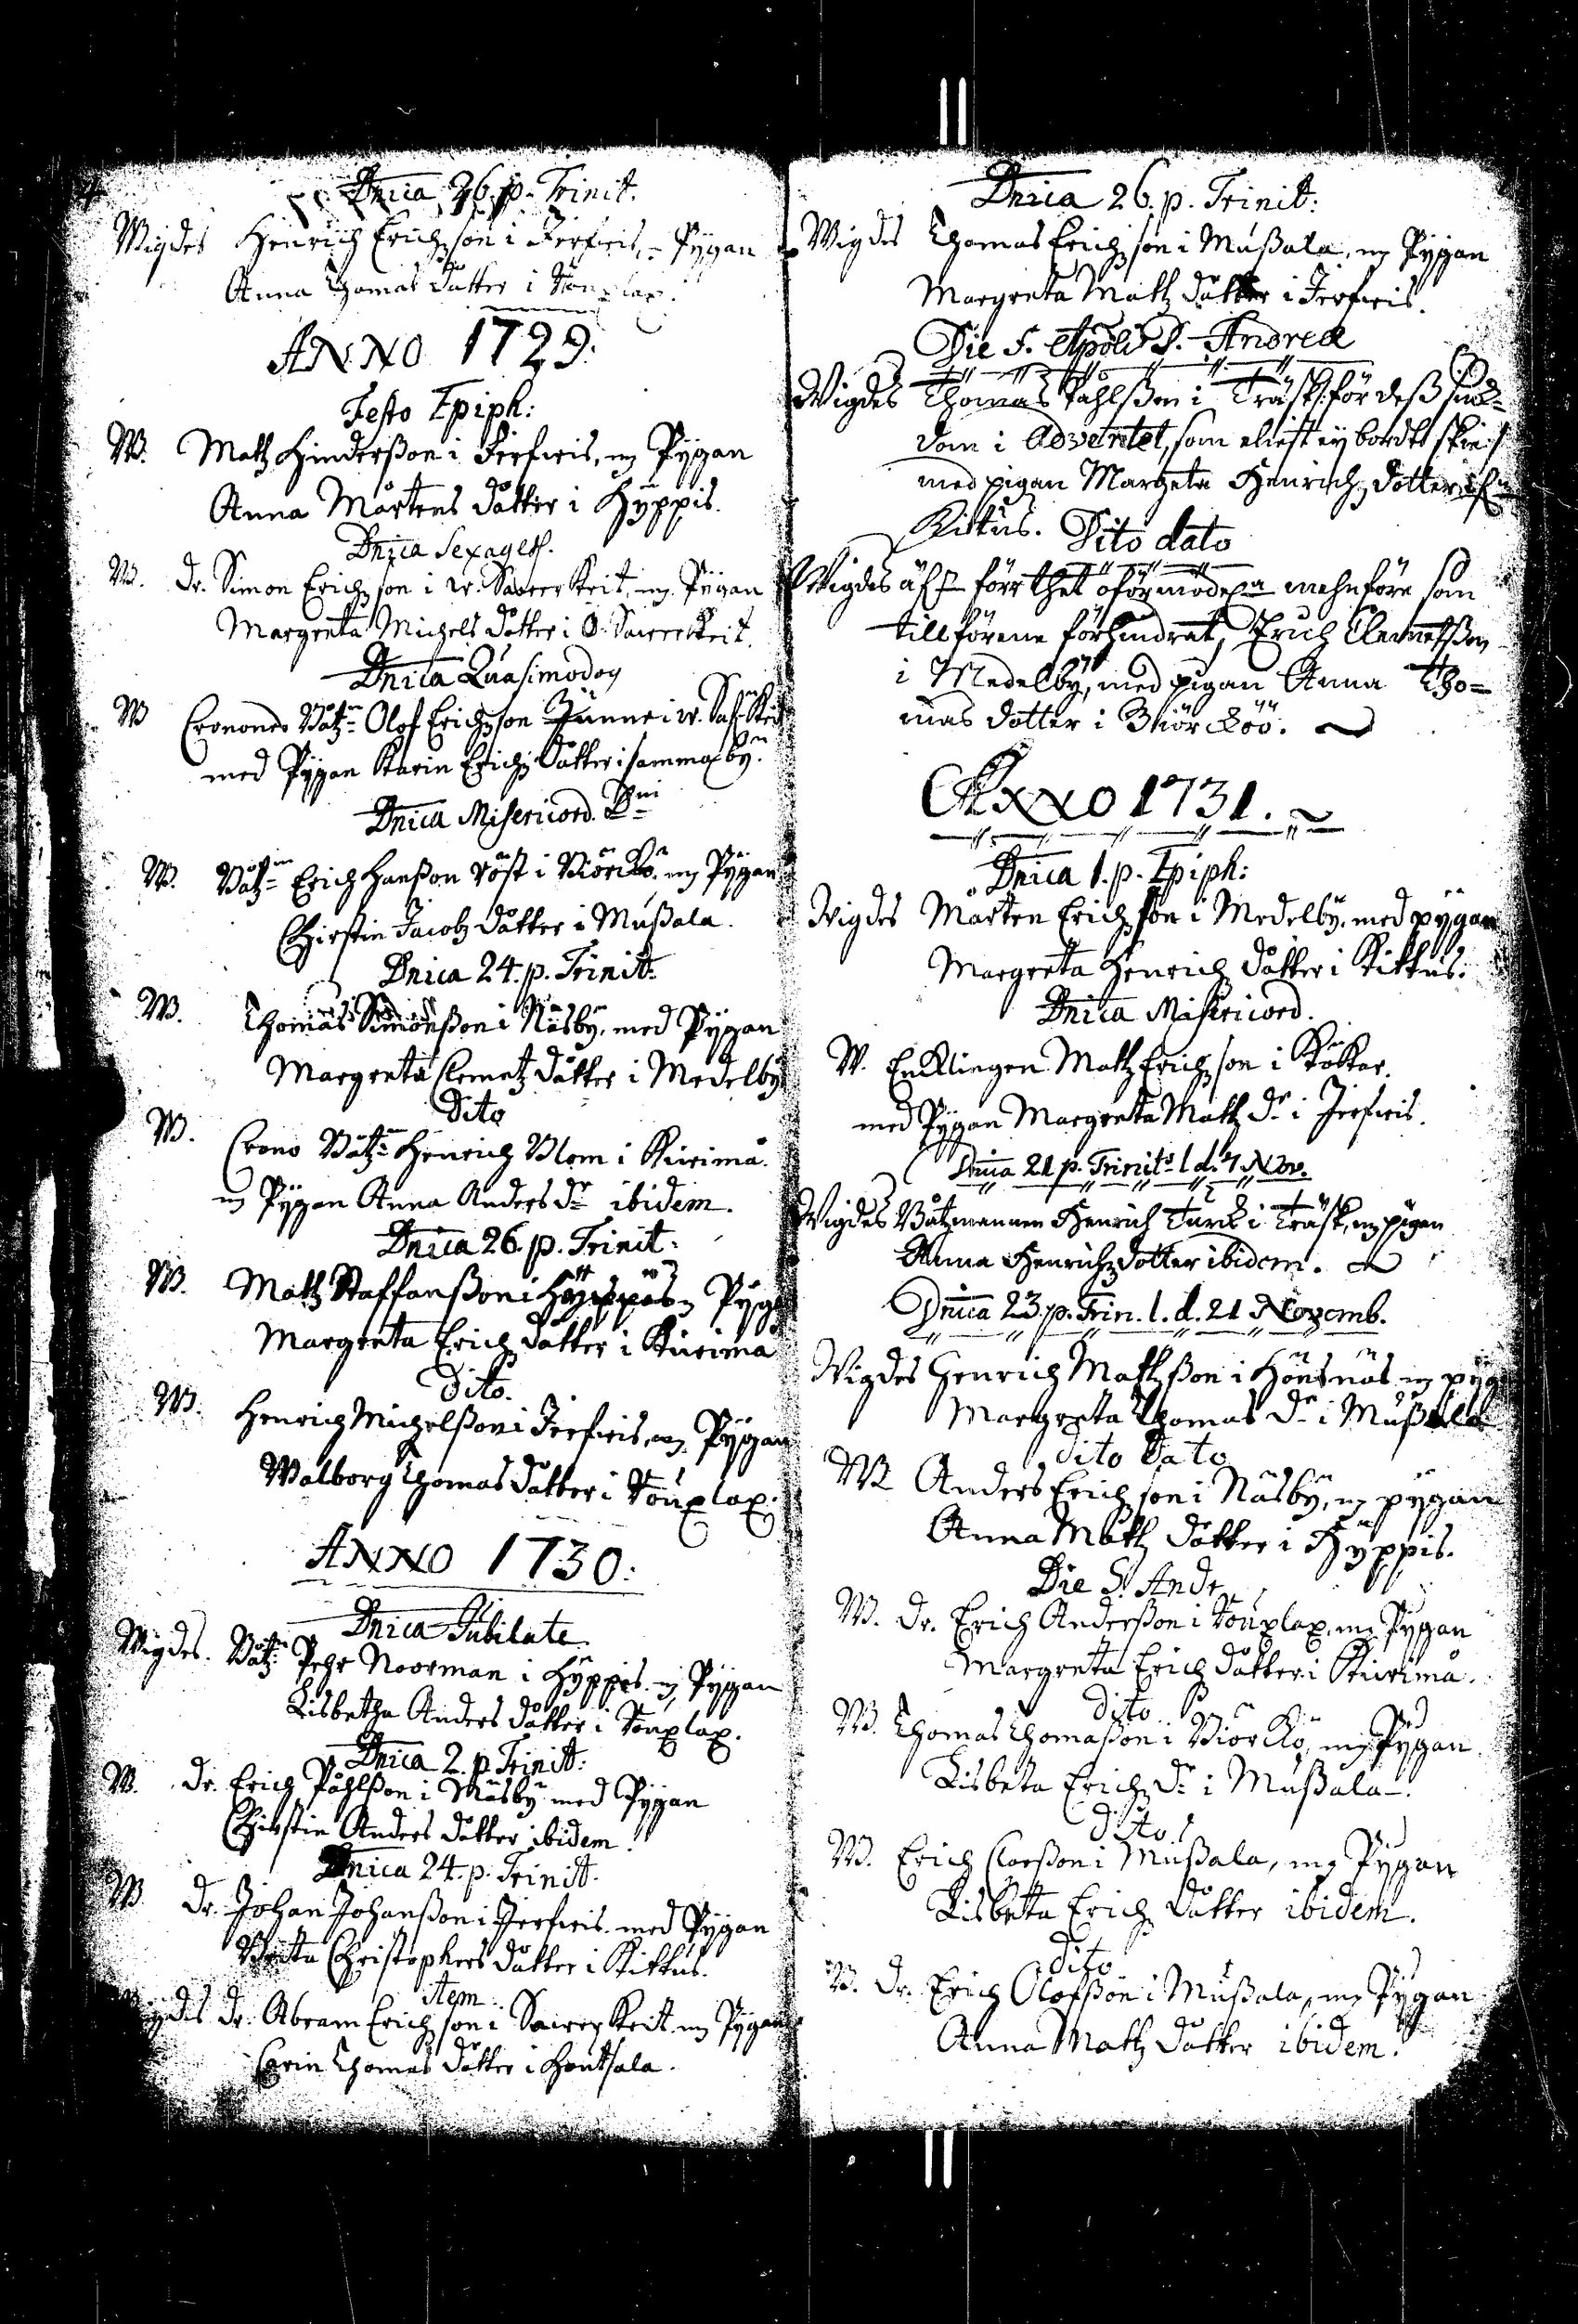 Dnica 26. p. Trinit.
Wigdes Henrich Erichson i Jerfwis, m Pÿgan
Anna Thomas dåtter i Wånxlax.
ANNO 1729.
Festo Epiph:
W. Matz Hinderßon i Jerfwis, m Pÿgan
Anna Mårtens dåtter i Hÿppis.
Dnica Sexages.
W. Dr. Simon Erichson i w. Sawerkeit, m Pÿgan
Margreta Michels dåtter i Ö. Sawerkeit.
Dnica Quasimodog
W Cronones Båtz- Olof Erichson i w. Saf.
med Pÿgan Karin Erichz dåtter i samma bÿ.
Dnica Misericord. Dni
W. Båtz- Erich Hanßon Röst i Biörkö. m Pÿgan
Chirstin Jacobz dåtter i Mußala.
Dnica 24. p. Trinit.
W. Thomas Simonßon i Näsbÿ, med Pÿgan
Margreta Clemetz dåtter i Medelbÿ
Dito
W. Crono Båtz- Henrich Blom i Kiurima.
m Pÿgan Anna Anders Dr ibidem.
Dnica 26. p. Trinit:
W. Matz Staffanßon i m Pÿg
Margreta Erich dåtter i Kiurima
Dito.
W. Henrich Michelßon i Jerfwis, m Pÿgan
Walborg Thomas dåtter i Wånxlax.
ANNO 1730:
Dnica Jubilate
Wigdes. Båtz- Pehr Noorman i Hÿppis. m Pÿgan
Lisbetha Anders dåtter i Wånxlax.
Dnica 2. p. Trinit:
W. Dr. Erich Påhlßon i Näsbÿ med Pÿgan
Chirstin Anders dåtter ibidem.
Dnica 24. p. Trinit.
W. Dr. Johan Johanßon i Jerfwis. med Pÿgan
Britta Christophers dåtter i Kittus.
Item
Wigdes Dr. Abram Erichson i Sawerkeit. m Pÿgan
Carin Thomas dåtter i Houtsala.
Dnica 26. p. Trinit:
Wigdes Thomas Erichson i Mußala, m Pÿgan
Margreta Matz dåtter i Jerfwis.
Die S. Apoli D. Andreæ
Wigdes Thomas Påhlßon i Träsk, för deß siuk-
dom i Adventet, som eliest eÿ bordt skie,
med pigan Margeta Henrichz dotter
Kittus. Dito dato
Wigdes äf- förr thet oförmodel- mehnföre som
tillförene förhindrat, Erich Clemetßon
i Medelbÿ, med pigan Anna Tho=
mas dotter i Biörcköö.
ANNO 1731.
Dnica 1. p. Epiph:
Wigdes Mårten Erichson i Medelbÿ, med pÿgan
Margreta Henrich dåtter i Kittus.
Dnica Misericord.
W. Enklingen Matz Erichson i Kökar.
med Pÿgan Margreta Matz Dr i Jerfwis.
Dnica 21 p. Trinit: l. d. 7 Nov.
Wigdes Båtzmannen Henrich Turck i Träsk, m pigan
Anna Henrichz dotter ibidem.
Dnica 23. p. Trin. l. d. 21 Novemb.
Wigdes Henrich Matzßon i Hönsnäs m pÿg
Margreta Thomas Dr i Mußala
Dito Dato
W Anders Erichson i Näsbÿ, m pÿgan
Anna Matz dåtter i Hÿppis.
Die S. Andr
W. Dr. Erich Anderßon i Wånxlax, m Pÿgan
Margreta Erich dåtter i Kiurima.
dito
W. Thomas Thomaßon i Biörkö, m Pÿgan
Lisbeta Erich Dr i Mußala.
dito
W. Erich Clarßon i Mußala, m Pÿgan
Lisbeta Erich dåtter ibidem.
dito
W. Dr. Erich Olofßon i Mußala, m Pÿgan
Anna Matz dåtter ibidem.